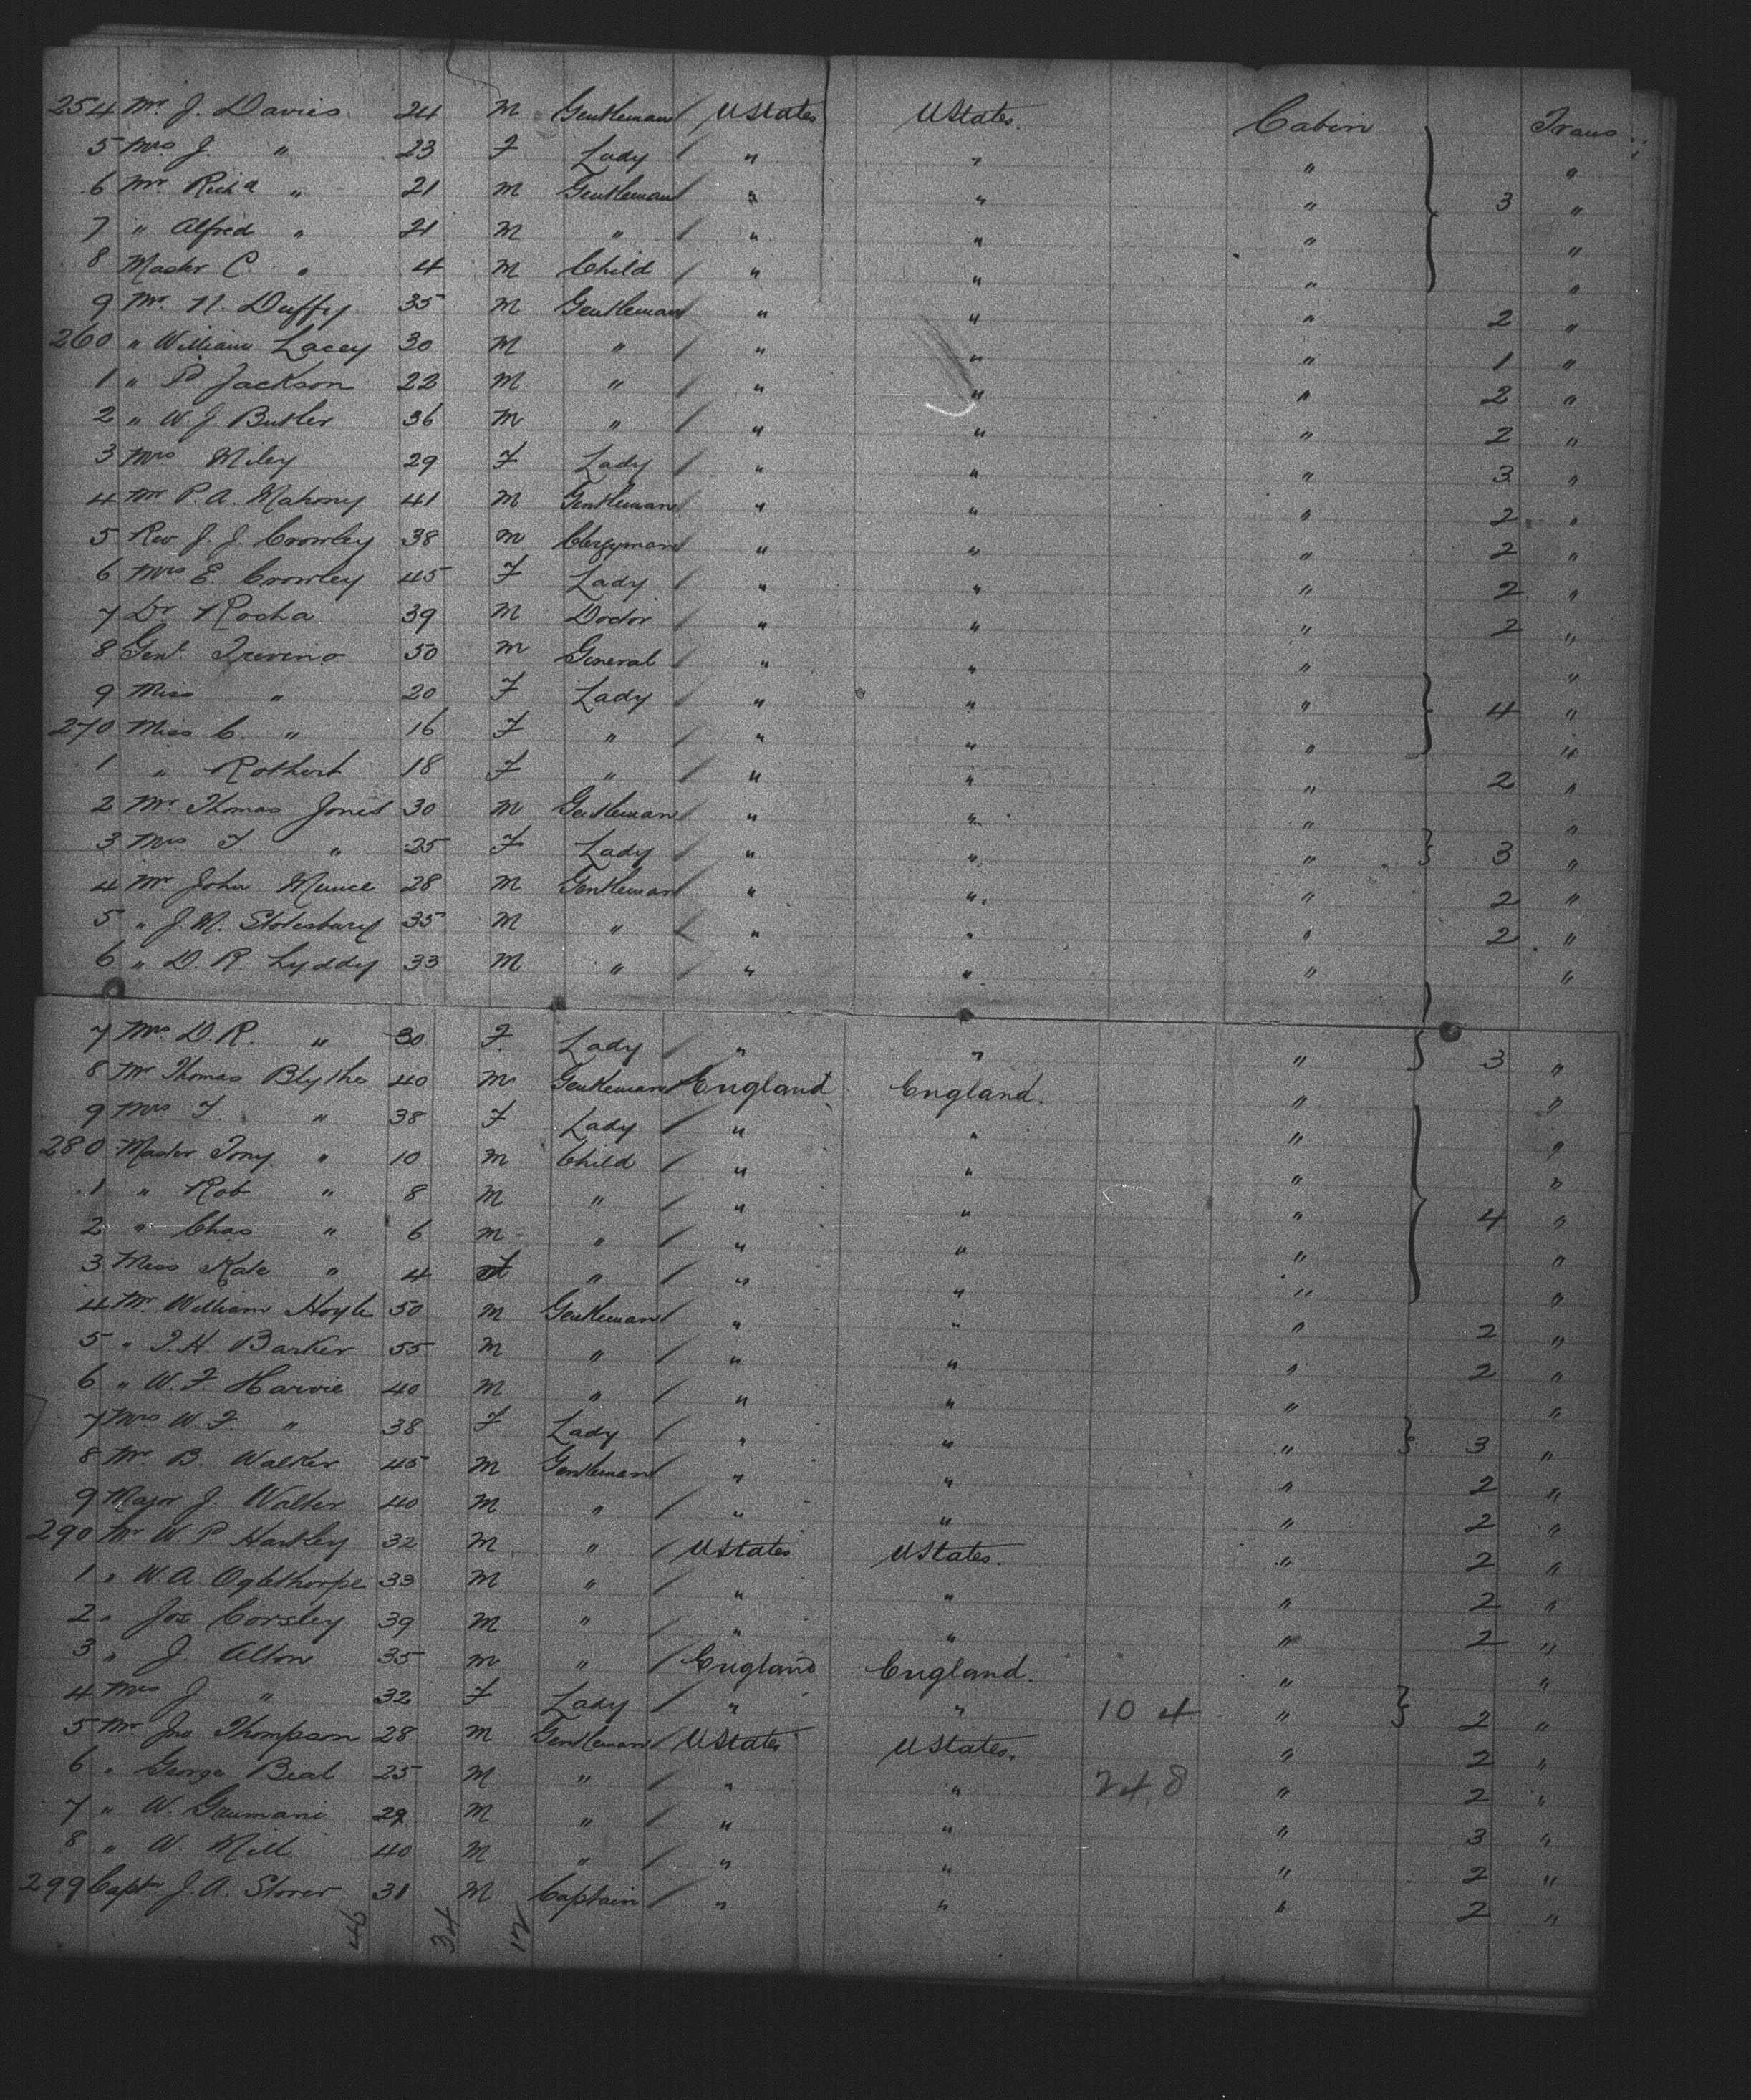 254 Mr. J. Davies 24 M Gentleman / UStates UStates. Cabin Trans
5 Mrs J. " 23 F Lady / " " " "
6 Mr. Richd " 21 M Gentleman / " " " 3 "
7 " Alfred " 21 M " / " " " "
8 Master C. " 4 M Child / " " " "
9 Mr. N. Duffy 35 M Gentleman " " " 2 "
260 " William Lacey 30 M " / " " " 1 "
1 " P Jackson 22 M " / " " " 2 "
2 " W J Butler 36 M " / " " " 2 "
3 Mrs Miley 29 F Lady / " " " 3 "
4 Mr P. A. Mahony 41 M Gentleman / " " " 2 "
5 Rev J. J. Crowley 38 M Clergyman / " " " 2 "
6 Mrs E. Crowley 45 F Lady / " " " 2 "
7 Dr Rocha 39 M Doctor / " " " 2 "
8 Genl. Trevino 50 M General / " " " "
9 Miss " 20 F Lady / " " " 4 "
270 Miss C. " 16 F " / " " " "
1 " Rothert 18 F " / " " " 2 "
2 Mr. Thomas Jones 30 M Gentleman / " " " "
3 Mrs T " 25 F Lady / " " " 3 "
4 Mr John Munce 28 M Gentleman " " " 2 "
5 " J. M. Stotesbury 35 M " / " " " 2 "
6 " D. R. Lyddy 33 M " / " " " "
7 Mrs D. R. " 30 F. Lady / " " " 3 "
8 Mr Thomas Blythe 40 M Gentleman / England England. " "
9 Mrs T. " 38 F Lady / " " " "
280 Master Tony " 10 M Child / " " " "
1 " Rob " 8 M " / " " " 4 "
2 " Chas " 6 M " / " " " "
3 Miss Kate " 4 F " / " " " "
4 Mr. William Hoyle 50 M Gentleman / " " " 2 "
5 " J. H. Barker 55 M " / " " " 2 "
6 " W. F. Harvie 40 M " / " " " "
7 Mrs W. F. " 38 F Lady / " " " 3 "
8 Mr. B. Walker 45 M Gentleman / " " " 2 "
9 Major J. Walter 40 M " / " " " 2 "
290 Mr W. P. Hartley 32 M " / UStates UStates. " 2 "
1 " W. A Oglethorpe 33 M " / " " " 2 "
2 " Jos Corsley 39 M " / " " " 2 "
3 " J. Alton 35 M " / England England. " "
4 Mrs J " 32 F Lady / " " 10 4 " 2 "
5 Mr Jno Thompson 28 M Gentleman / UStates UStates. " 2 "
6 " George Beal 25 M " / " " 248 " 2 "
7 " W. Gaumani 29 M " / " " " 3 "
8 " W. Mill 40 M " / " " " 2 "
299 Captn J. A. Storer 31 M Captain / " " " 2 "
46 34 12